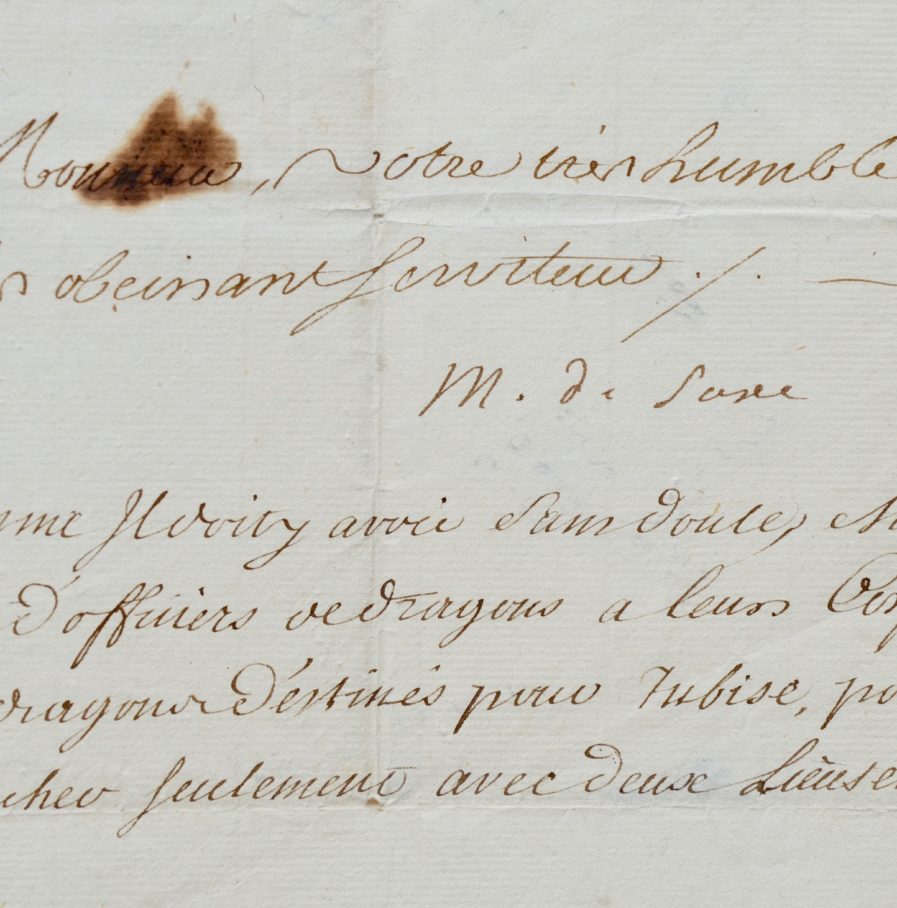 Monsieur, Votre très humble
obeissant Serviteur ./.
M. de Saxe
me Il doity avoir Sans doute,
d'officiers de dragons a leurs
dragons d'estinés pour Tubise,
cher Seulement avec deux Lieute